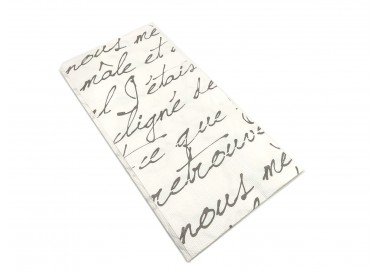 nous mè
mâle et
il j'étais
digné de
ce que
retrouv
nous mè